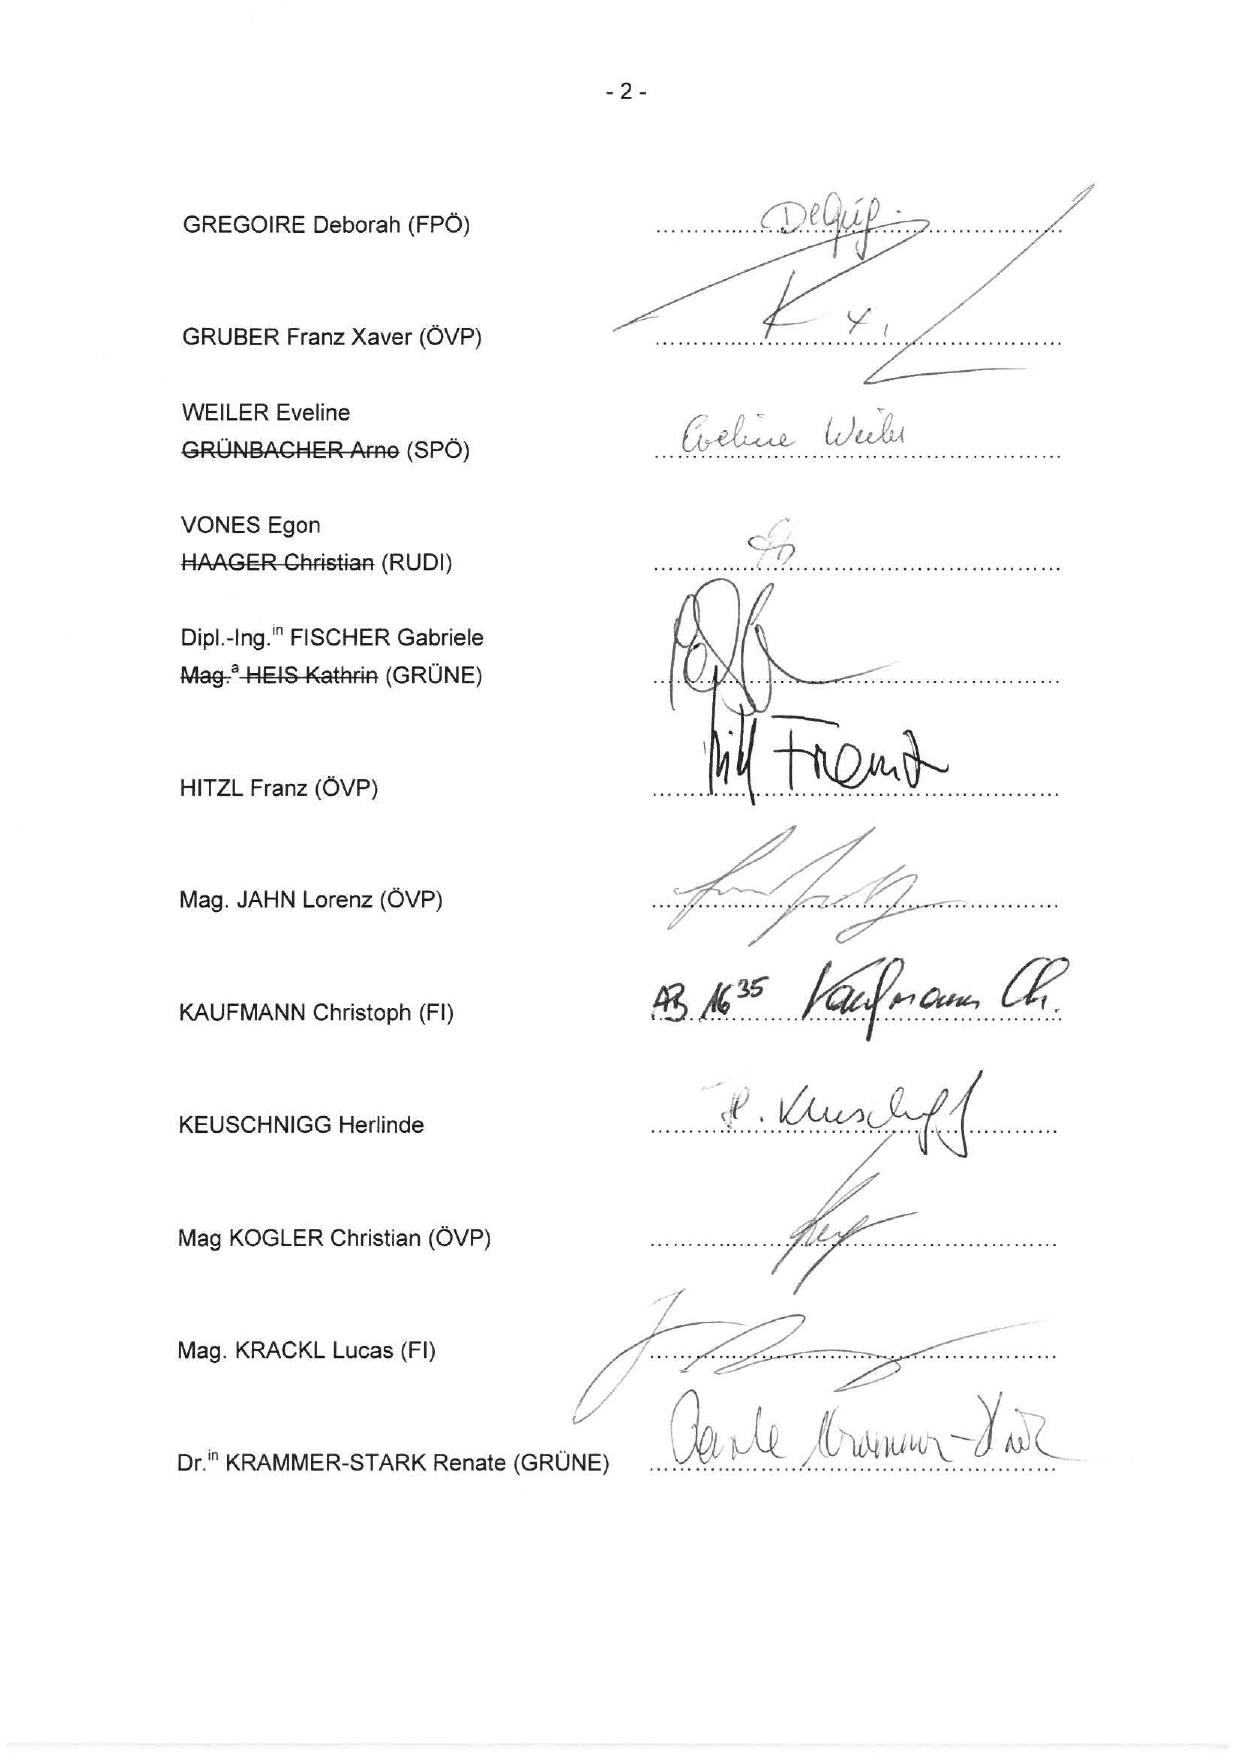 - 2 -
GREGOIRE Deborah (FPÖ)
GRUBER Franz Xaver (ÖVP)
WEILER Eveline
Eveline Weiler
GRÜNBACHER Arno (SPÖ)
VONES Egon
HAAGER Christian (RUDI)
Dipl.-Ing.in FISCHER Gabriele
Mag.a HEIS Kathrin (GRÜNE)
HITZL Franz (ÖVP)
Mag. JAHN Lorenz (ÖVP)
KAUFMANN Christoph (FI) AB 16 35 Kaufmann Ch.
KEUSCHNIGG Herlinde H. Keuschnigg
Mag KOGLER Christian (ÖVP)
Mag. KRACKL Lucas (FI)
Dr.in KRAMMER-STARK Renate (GRÜNE) Renate Krammer-Stark